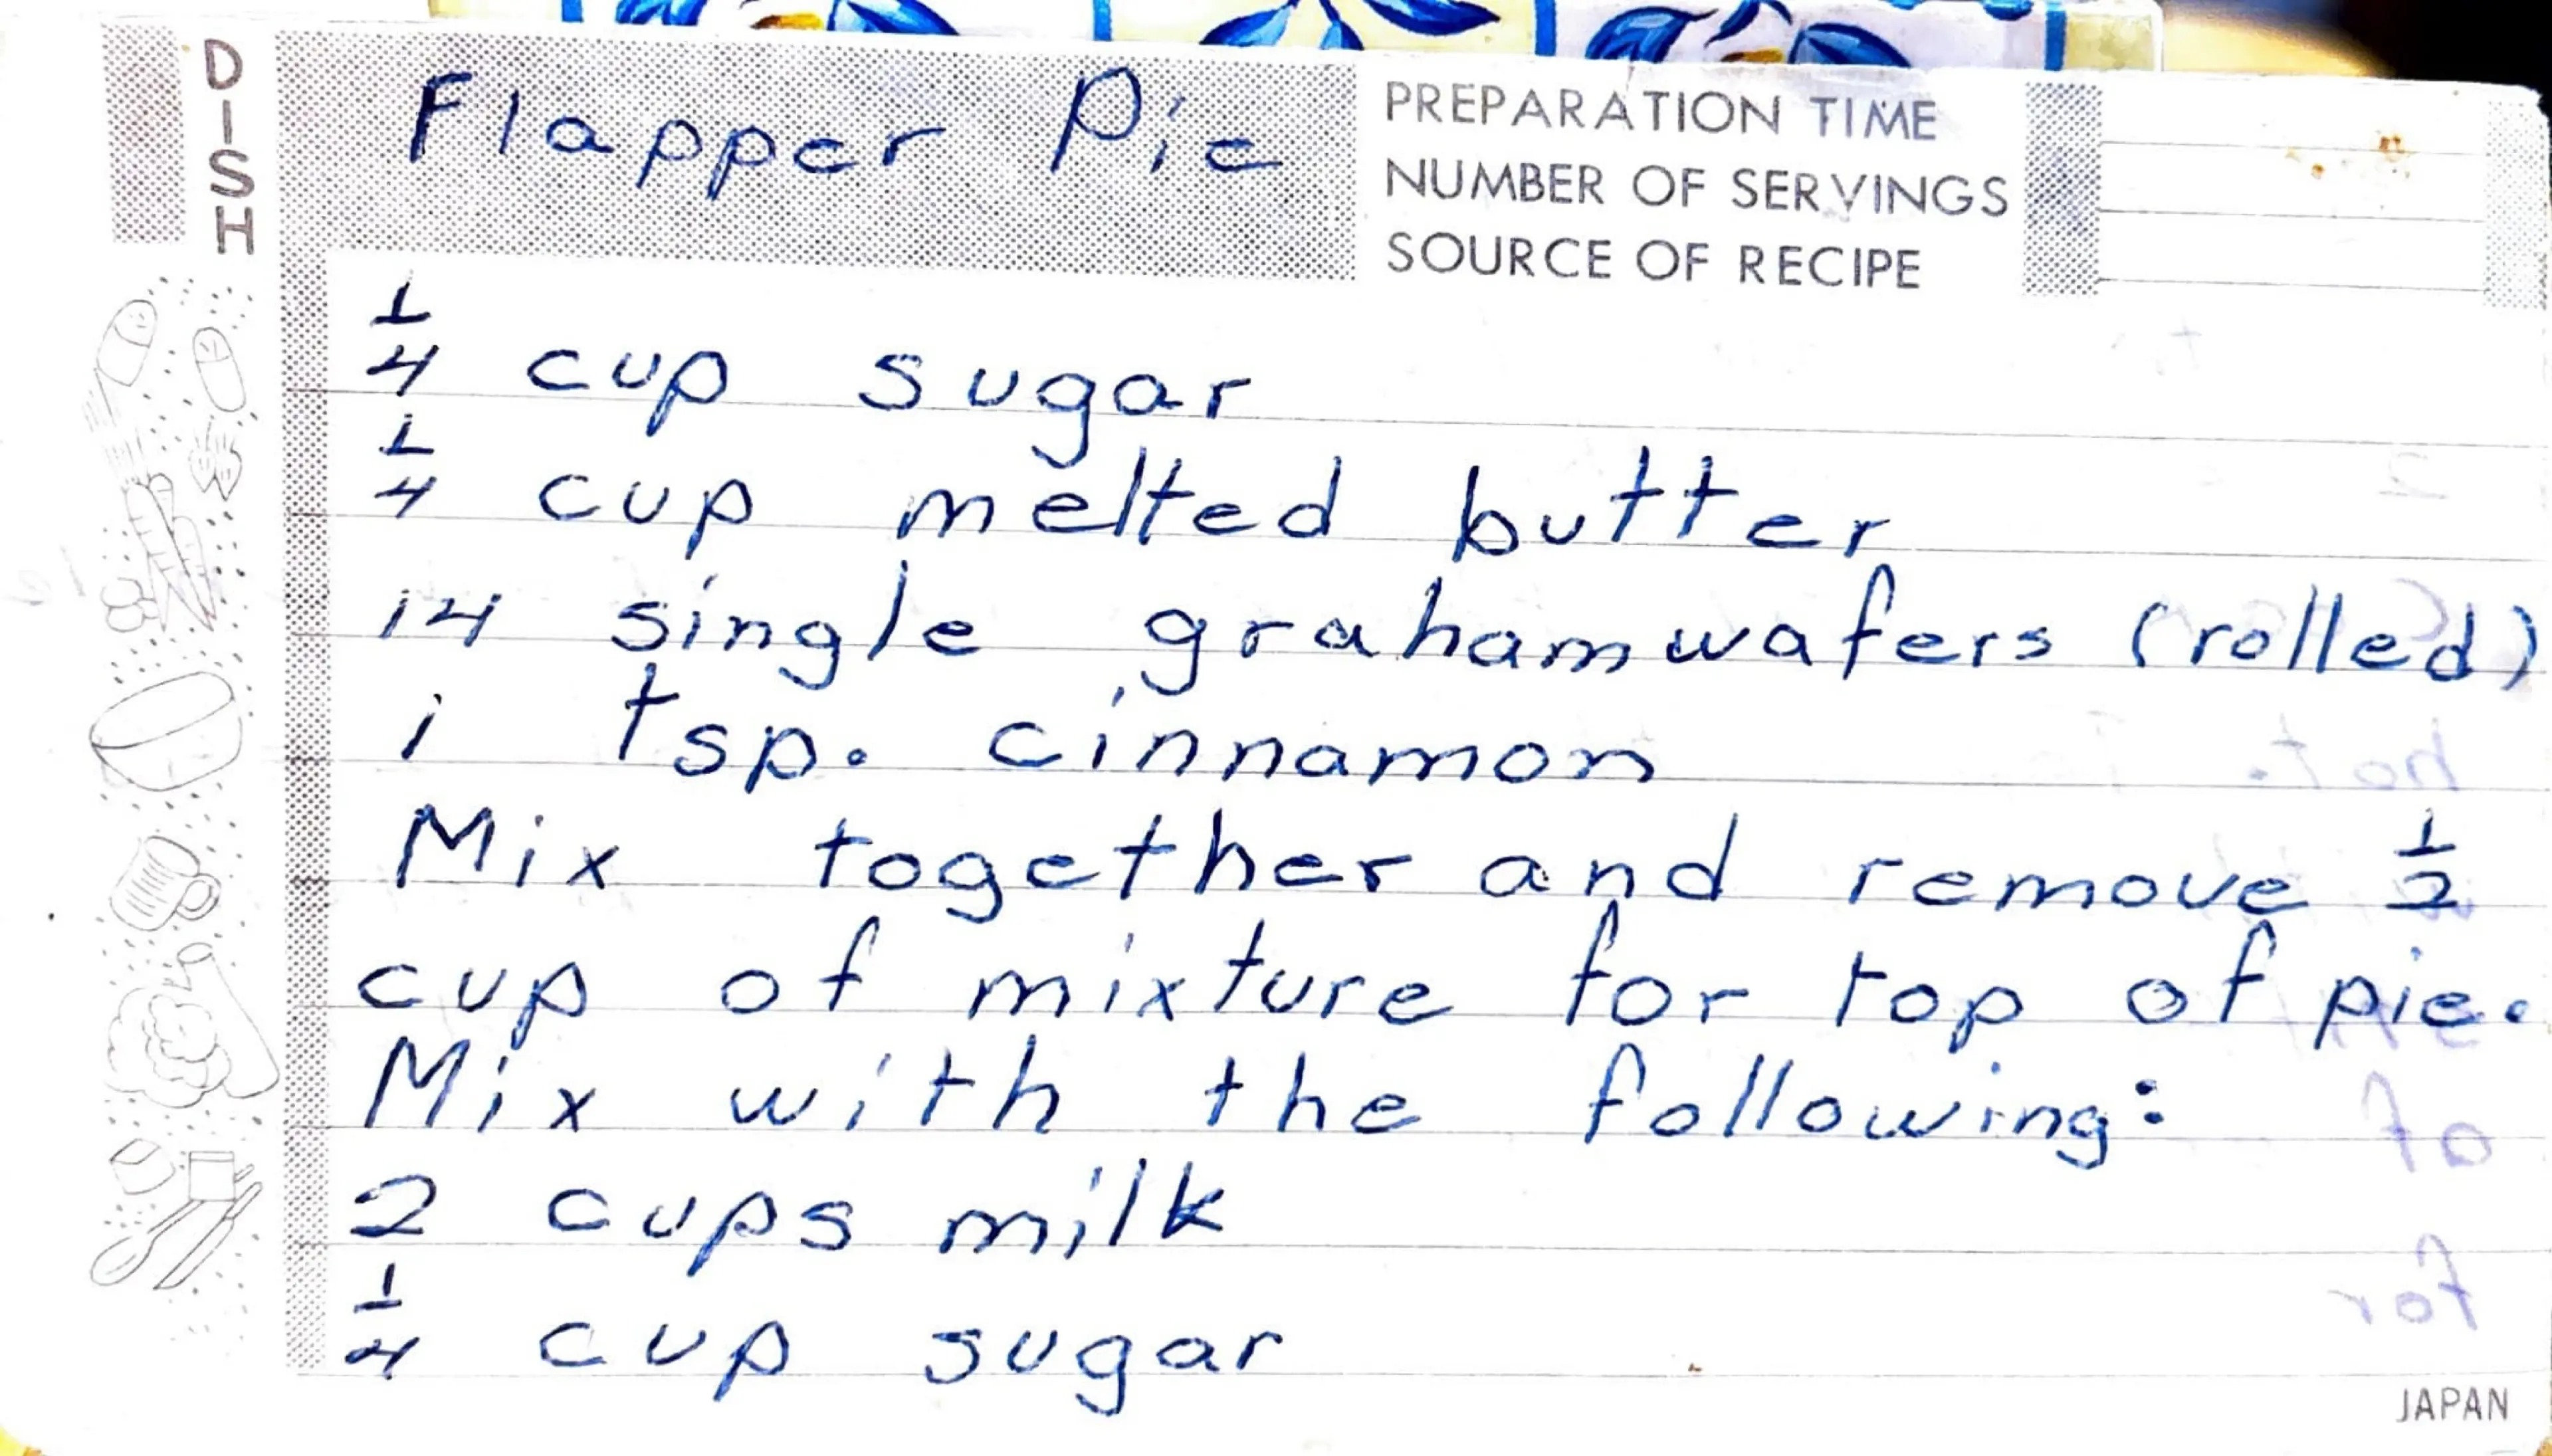 DISH
Flapper Pie
PREPARATION TIME
NUMBER OF SERVINGS
SOURCE OF RECIPE
1/4 cup sugar
1/4 cup melted butter
14 single grahamwafers (rolled)
1 tsp. cinnamon
Mix together and remove 1/2
cup of mixture for top of pie.
Mix with the following:
2 cups milk
1/4 cup sugar
JAPAN